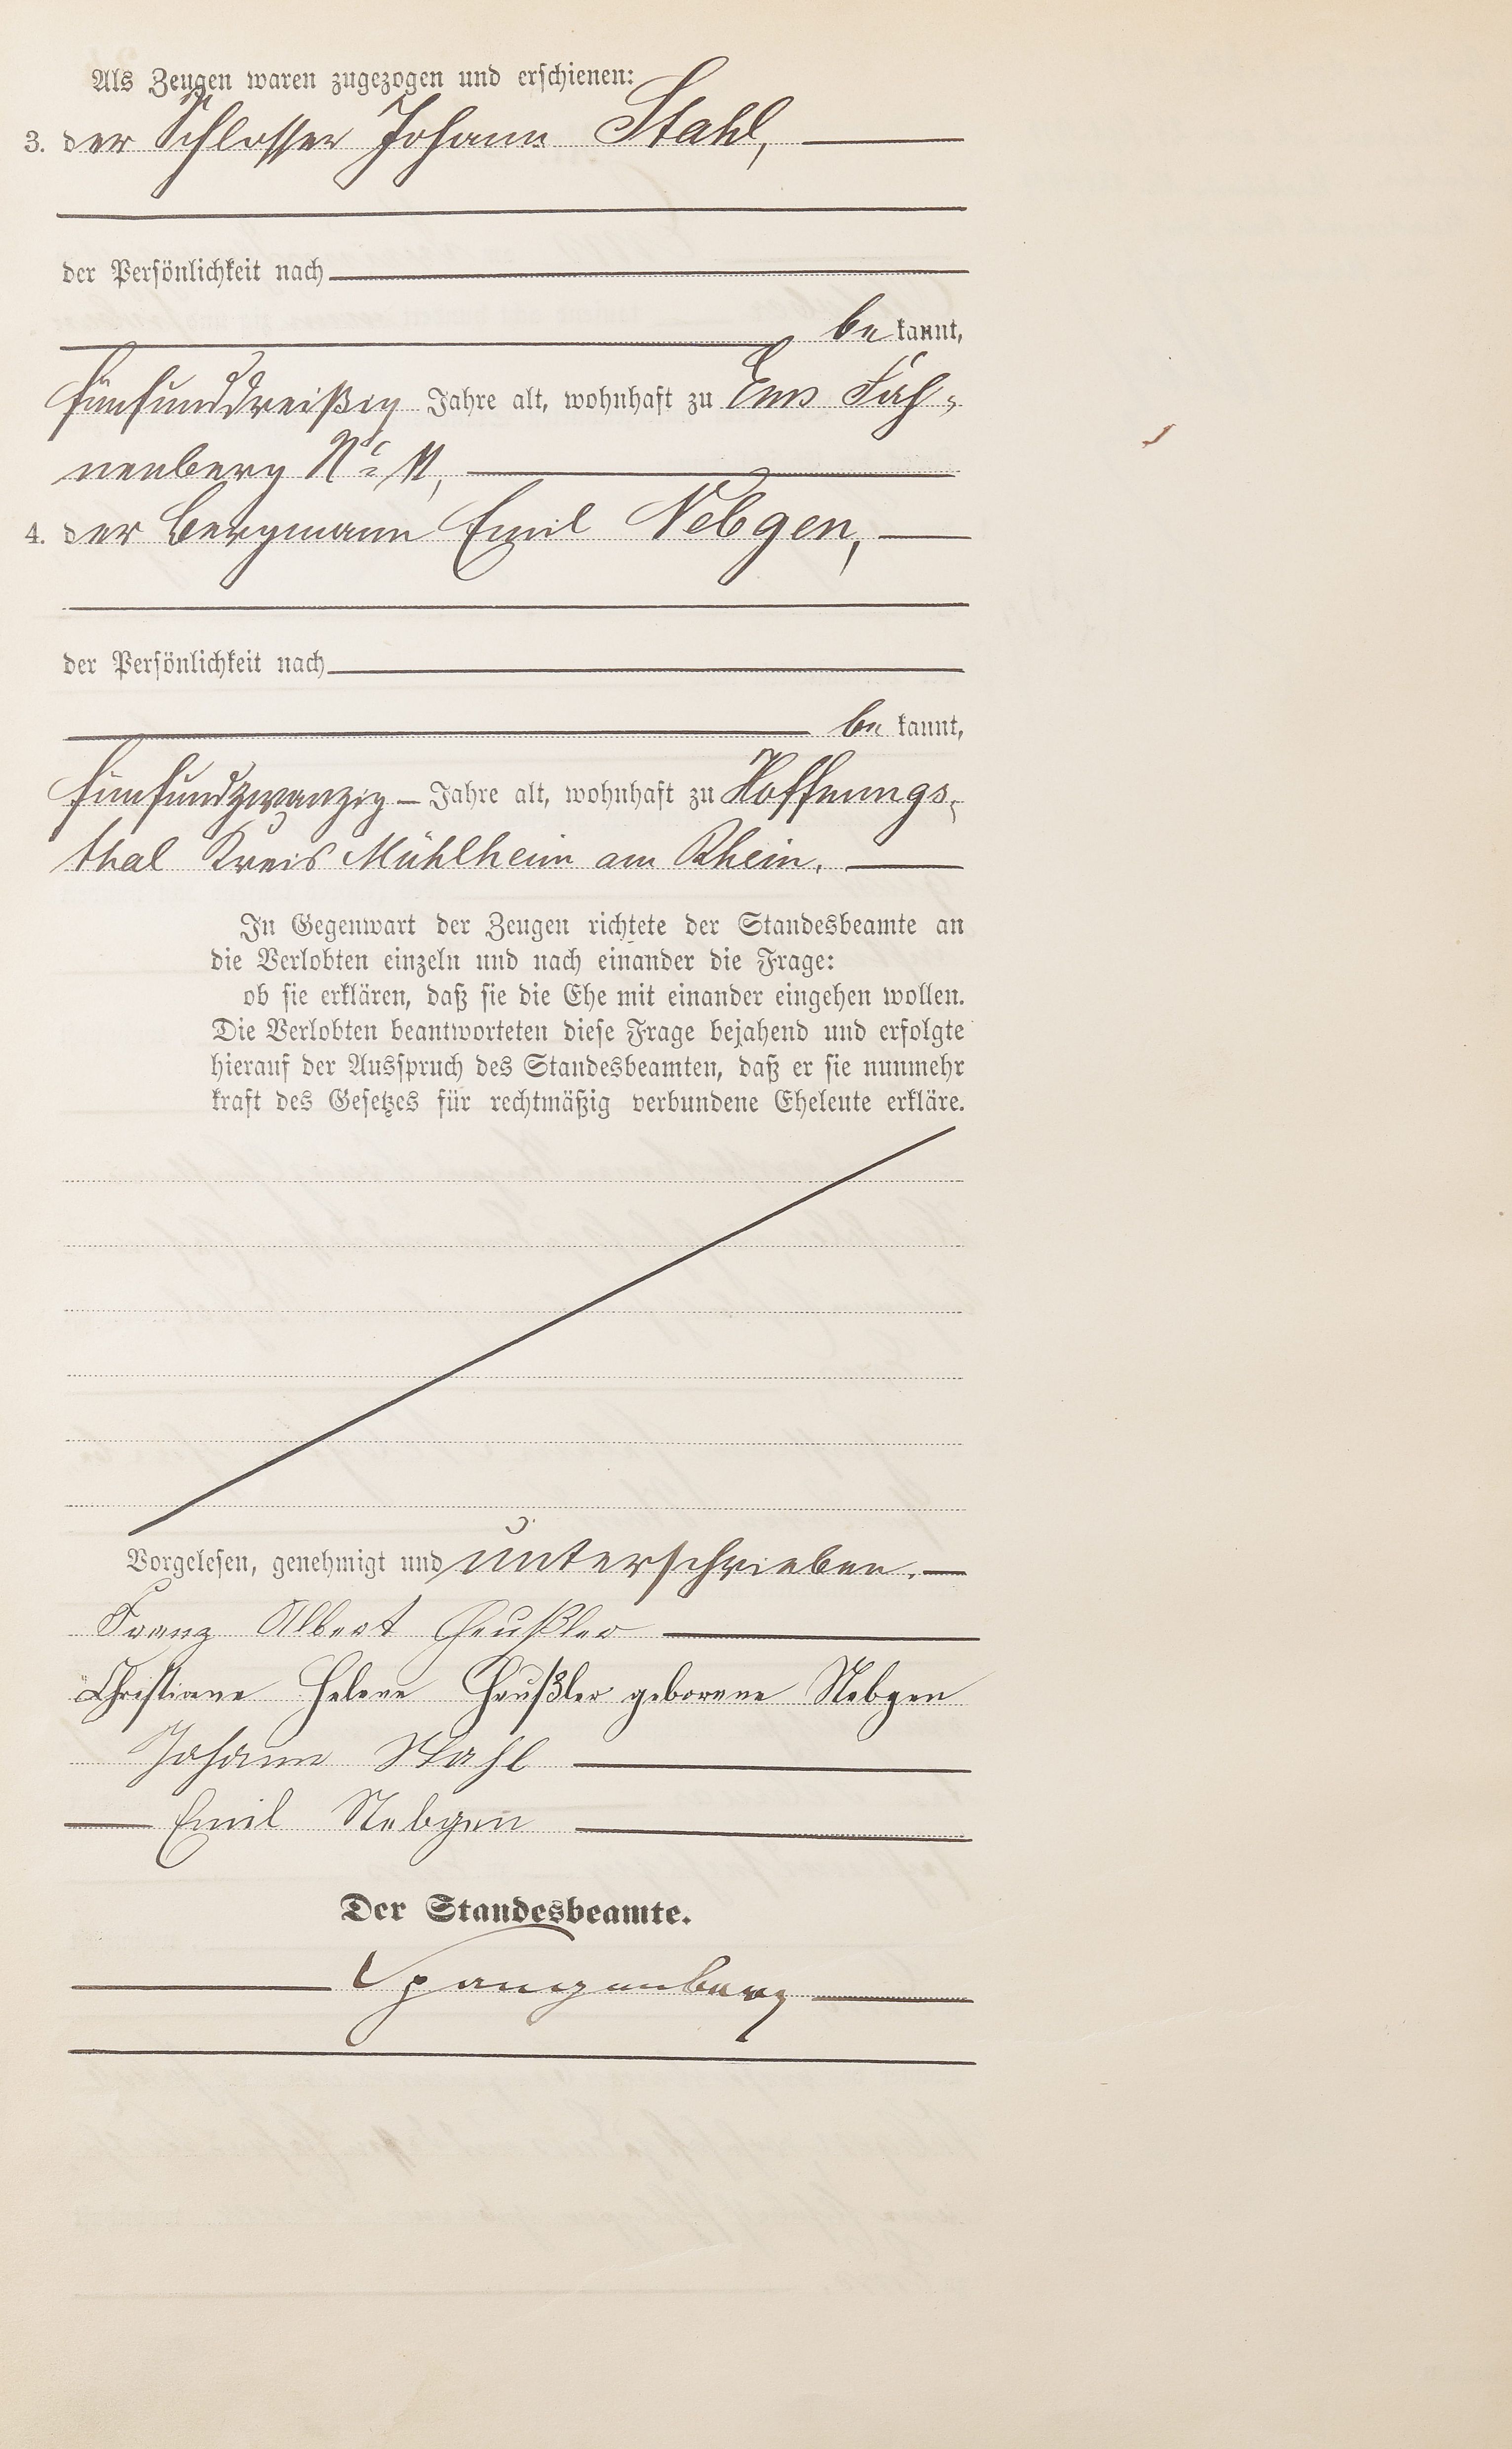 Als Zeugen waren zugezogen und erschienen:
3. der Schlosser Johann Stahl,
der Persönlichkeit nach
be kannt,
fünfunddreißig Jahre alt, wohnhaft zu Ems Fah-
nenberg No 11,
4. der Bergmann Emil Nebgen,
der Persönlichkeit nach
be kannt,
fünfundzwanzig Jahre alt, wohnhaft zu Hoffnungs-
thal Kreis Mühlheim am Rhein.
In Gegenwart der Zeugen richtete der Standesbeamte an
die Verlobten einzeln und nach einander die Frage:
ob sie erklären, daß sie die Ehe mit einander eingehen wollen.
Die Verlobten beantworteten diese Frage bejahend und erfolgte
hierauf der Ausspruch des Standesbeamten, daß er sie nunmehr
kraft des Gesetzes für rechtmäßig verbundene Eheleute erkläre.
Vorgelesen, genehmigt und unterschrieben.
Franz Albert Heußler
Christiane Helene Heußler geborene Nebgen
Johann Stahl
Emil Nebgen
Der Standesbeamte.
Spangenberg